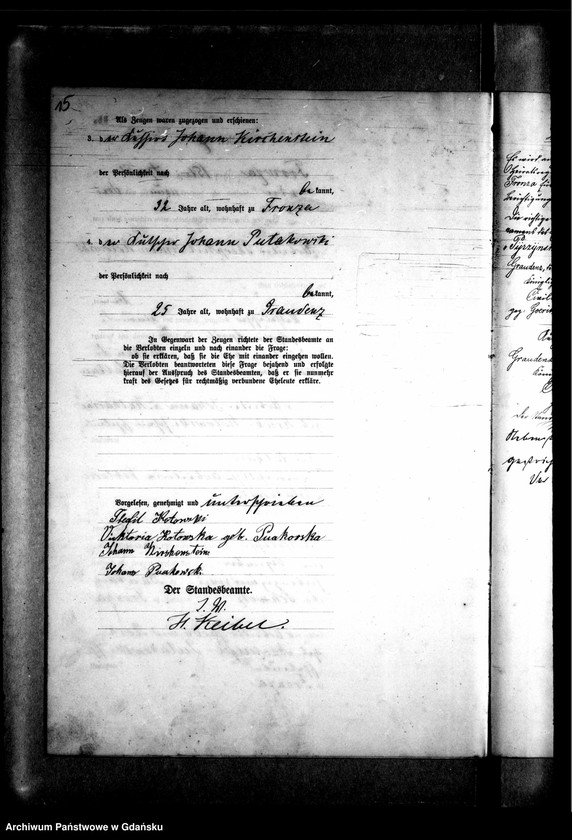 15
Als Zeugen waren zugezogen und erschienen:
3. der Kutscher Johann Kirschenstein
der Persönlichkeit nach
bekannt,
32 Jahre alt, wohnhaft zu Fronza
4. der Kutscher Johann Putakowski
der Persönlichkeit nach
bekannt,
25 Jahre alt, wohnhaft zu Graudenz
In Gegenwart der Zeugen richtete der Standesbeamte an
die Verlobten einzeln und nach einander die Frage:
ob sie erklären, daß sie die Ehe mit einander eingehen wollen.
Die Verlobten beantworteten diese Frage bejahend und erfolgte
hierauf der Ausspruch des Standesbeamten, daß er sie nunmehr
kraft des Gesetzes für rechtmäßig verbundene Eheleute erkläre.
Vorgelesen, genehmigt und unterschrieben
Kotowski
Viktoria Kotowska geb.
Johann
Johann
Der Standesbeamte.
J. V.
H. Keibel.
Es wird
Fronza für
Die richtige
namens des
Graudenz,
königli
Civil
gez.
Graudenz
König
Der
Nebens
Ver
Archiwum Państwowe w Gdańsku